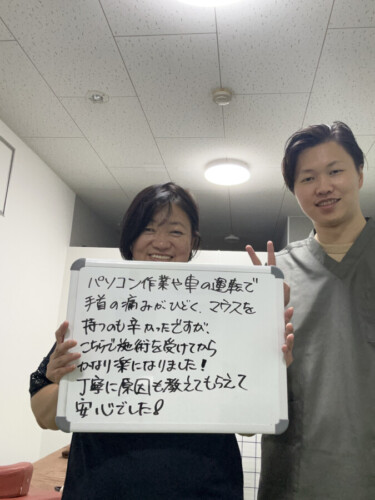 パソコン作業や車の運転で
手首の痛みがひどく、マウスを
持つのも辛かったですが、
こちらで施術を受けてから
かなり楽になりました!
丁寧に原因も教えてもらえて
安心でした!